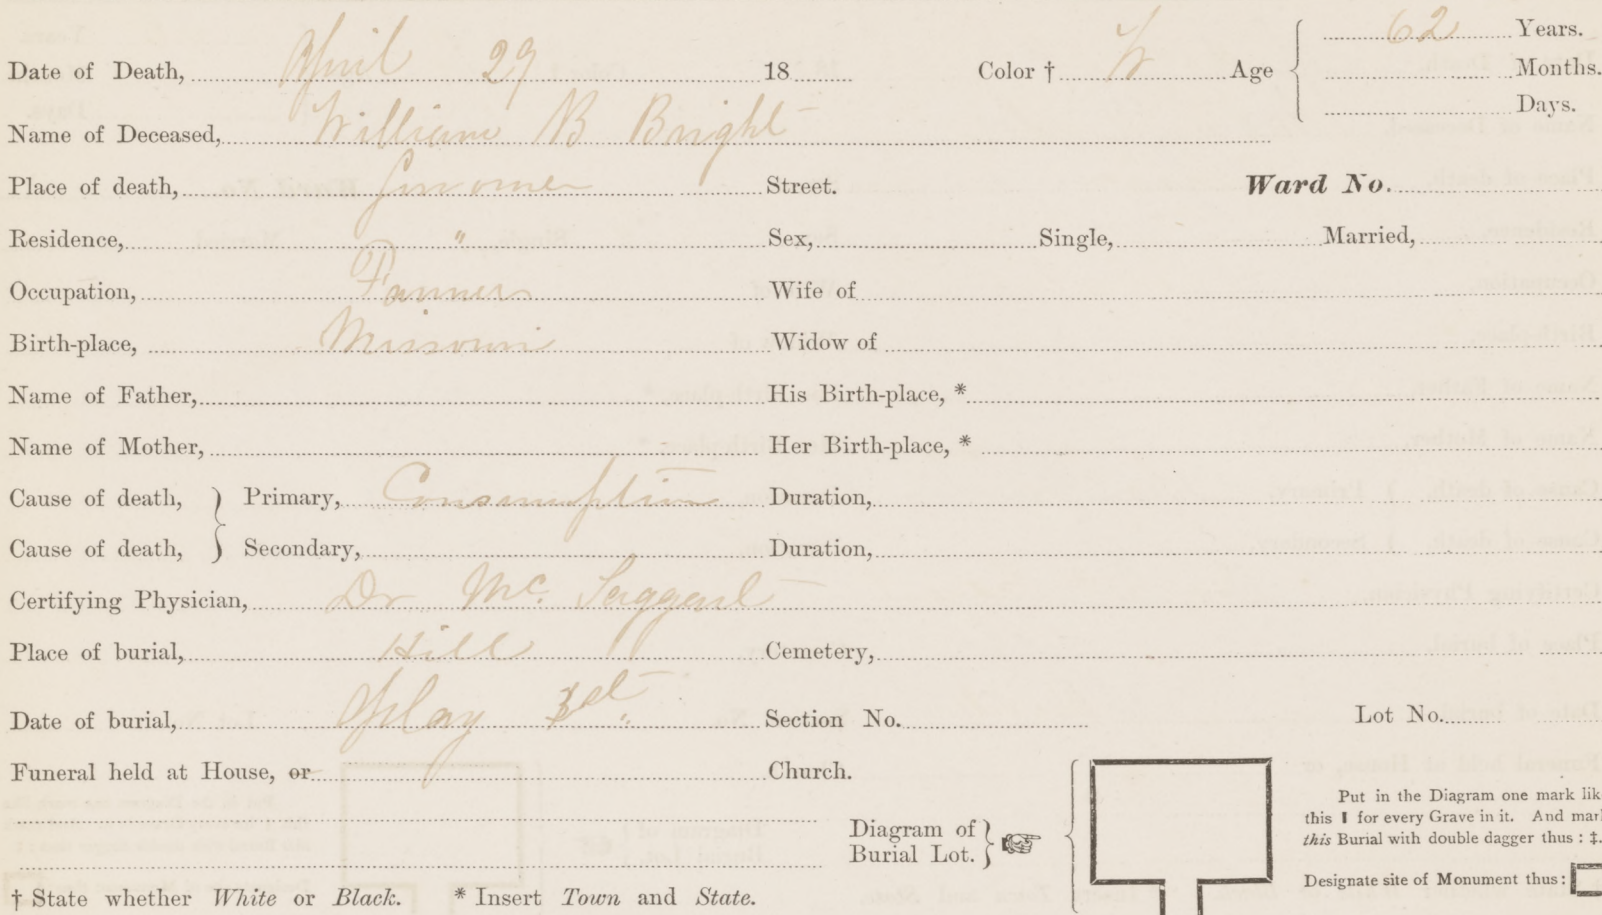 62 Years.
Date of Death, April 29 18 Color † W Age Months.
Days.
Name of Deceased, William B Bright
Place of death, Street. Ward No.
Residence, " Sex, Single, Married,
Occupation, Farmer Wife of
Birth-place, Missouri Widow of
Name of Father, His Birth-place, *
Name of Mother, Her Birth-place, *
Cause of death, Primary, Consumption Duration,
Cause of death, Secondary, Duration,
Certifying Physician, Dr Mc. Taggart
Place of burial, Hill Cemetery,
Date of burial, May 1st " Section No. Lot No.
Funeral held at House, or Church.
Put in the Diagram one mark lik
this ❙ for every Grave in it. And mar
this Burial with double dagger thus : ‡.
Diagram of
Burial Lot.
Designate site of Monument thus:
† State whether White or Black. * Insert Town and State.